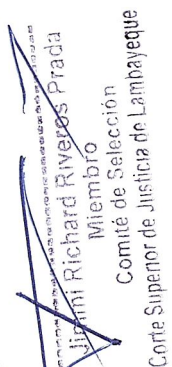 Richard Riveros Prada
Miembro
Comité de Selección
Corte Superior de Justicia de Lambayeque